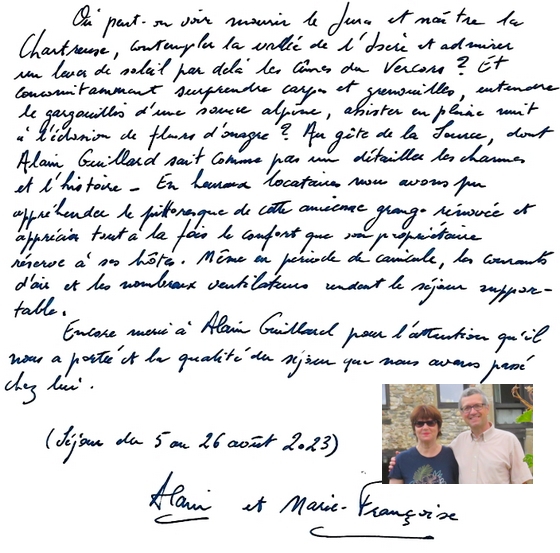 Où peut-on voir mourir le Jura et naître la
Chartreuse, contempler la vallée de l'Isère et admirer
un lever de soleil par delà les cimes du Vercors ? Et
concomitamment surprendre carpes et grenouilles, entendre
le gargouillis d'une source alpine, assister en pleine nuit
à l'éclosion de fleurs d'onagre ? Au gîte de la Source, dont
Alain Guillard sait comme pas un détailler les charmes
et l'histoire – En heureux locataires nous avons pu
appréhender le pittoresque de cette ancienne grange rénovée et
apprécier tout à la fois le confort que son propriétaire
réserve à ses hôtes. Même en période de canicule, les courants
d'air et les nombreux ventilateurs rendent le séjour suppor-
table.
Encore merci à Alain Guillard pour l'attention qu'il
nous a portée et la qualité du séjour que nous avons passé
chez lui.
(Séjour du 5 au 26 août 2023)
Alain et Marie-Françoise